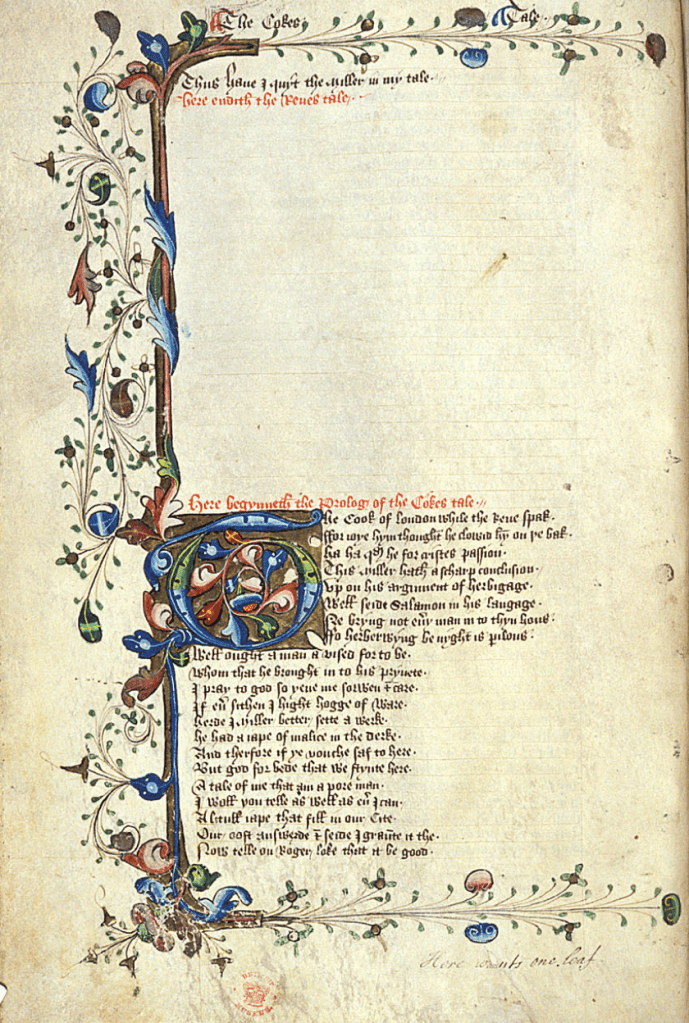 The Cokes Tale
Thus have I quyt the Miller in my tale
here endith the Reues tale
Here begynneth the Prolog of the Cokes tale
The Cook of london while the Reue spak
ffor ioye hym thought he clowid hym on þe bak
ha ha qþ he for cristes passion
This Miller hath a scharp conclusion
Vp on his argument of herbigage
Well seide Salamon in his langage
Ne bryng not eny man in to thyn hous
ffo herberwyng be nyght is pilous
Well ought a man avised for to be
Whom that he brought in to his pryuete
I pray to god so yeue me sorwen & care
If eũ sithen I hight hogge of Ware
Herde I Miller better sette a werk
he had a iape of malice in the derke
And therfore if ye vouche saf to here
But god for bede that we stynte here
A tale of me that am a pore man
I woll you telle as well as eũ I can
A litull iape that fill in our Cite
Our oost answerde & seide I graũte it the
Now telle on Roger loke that it be good
Here wants one leaf.